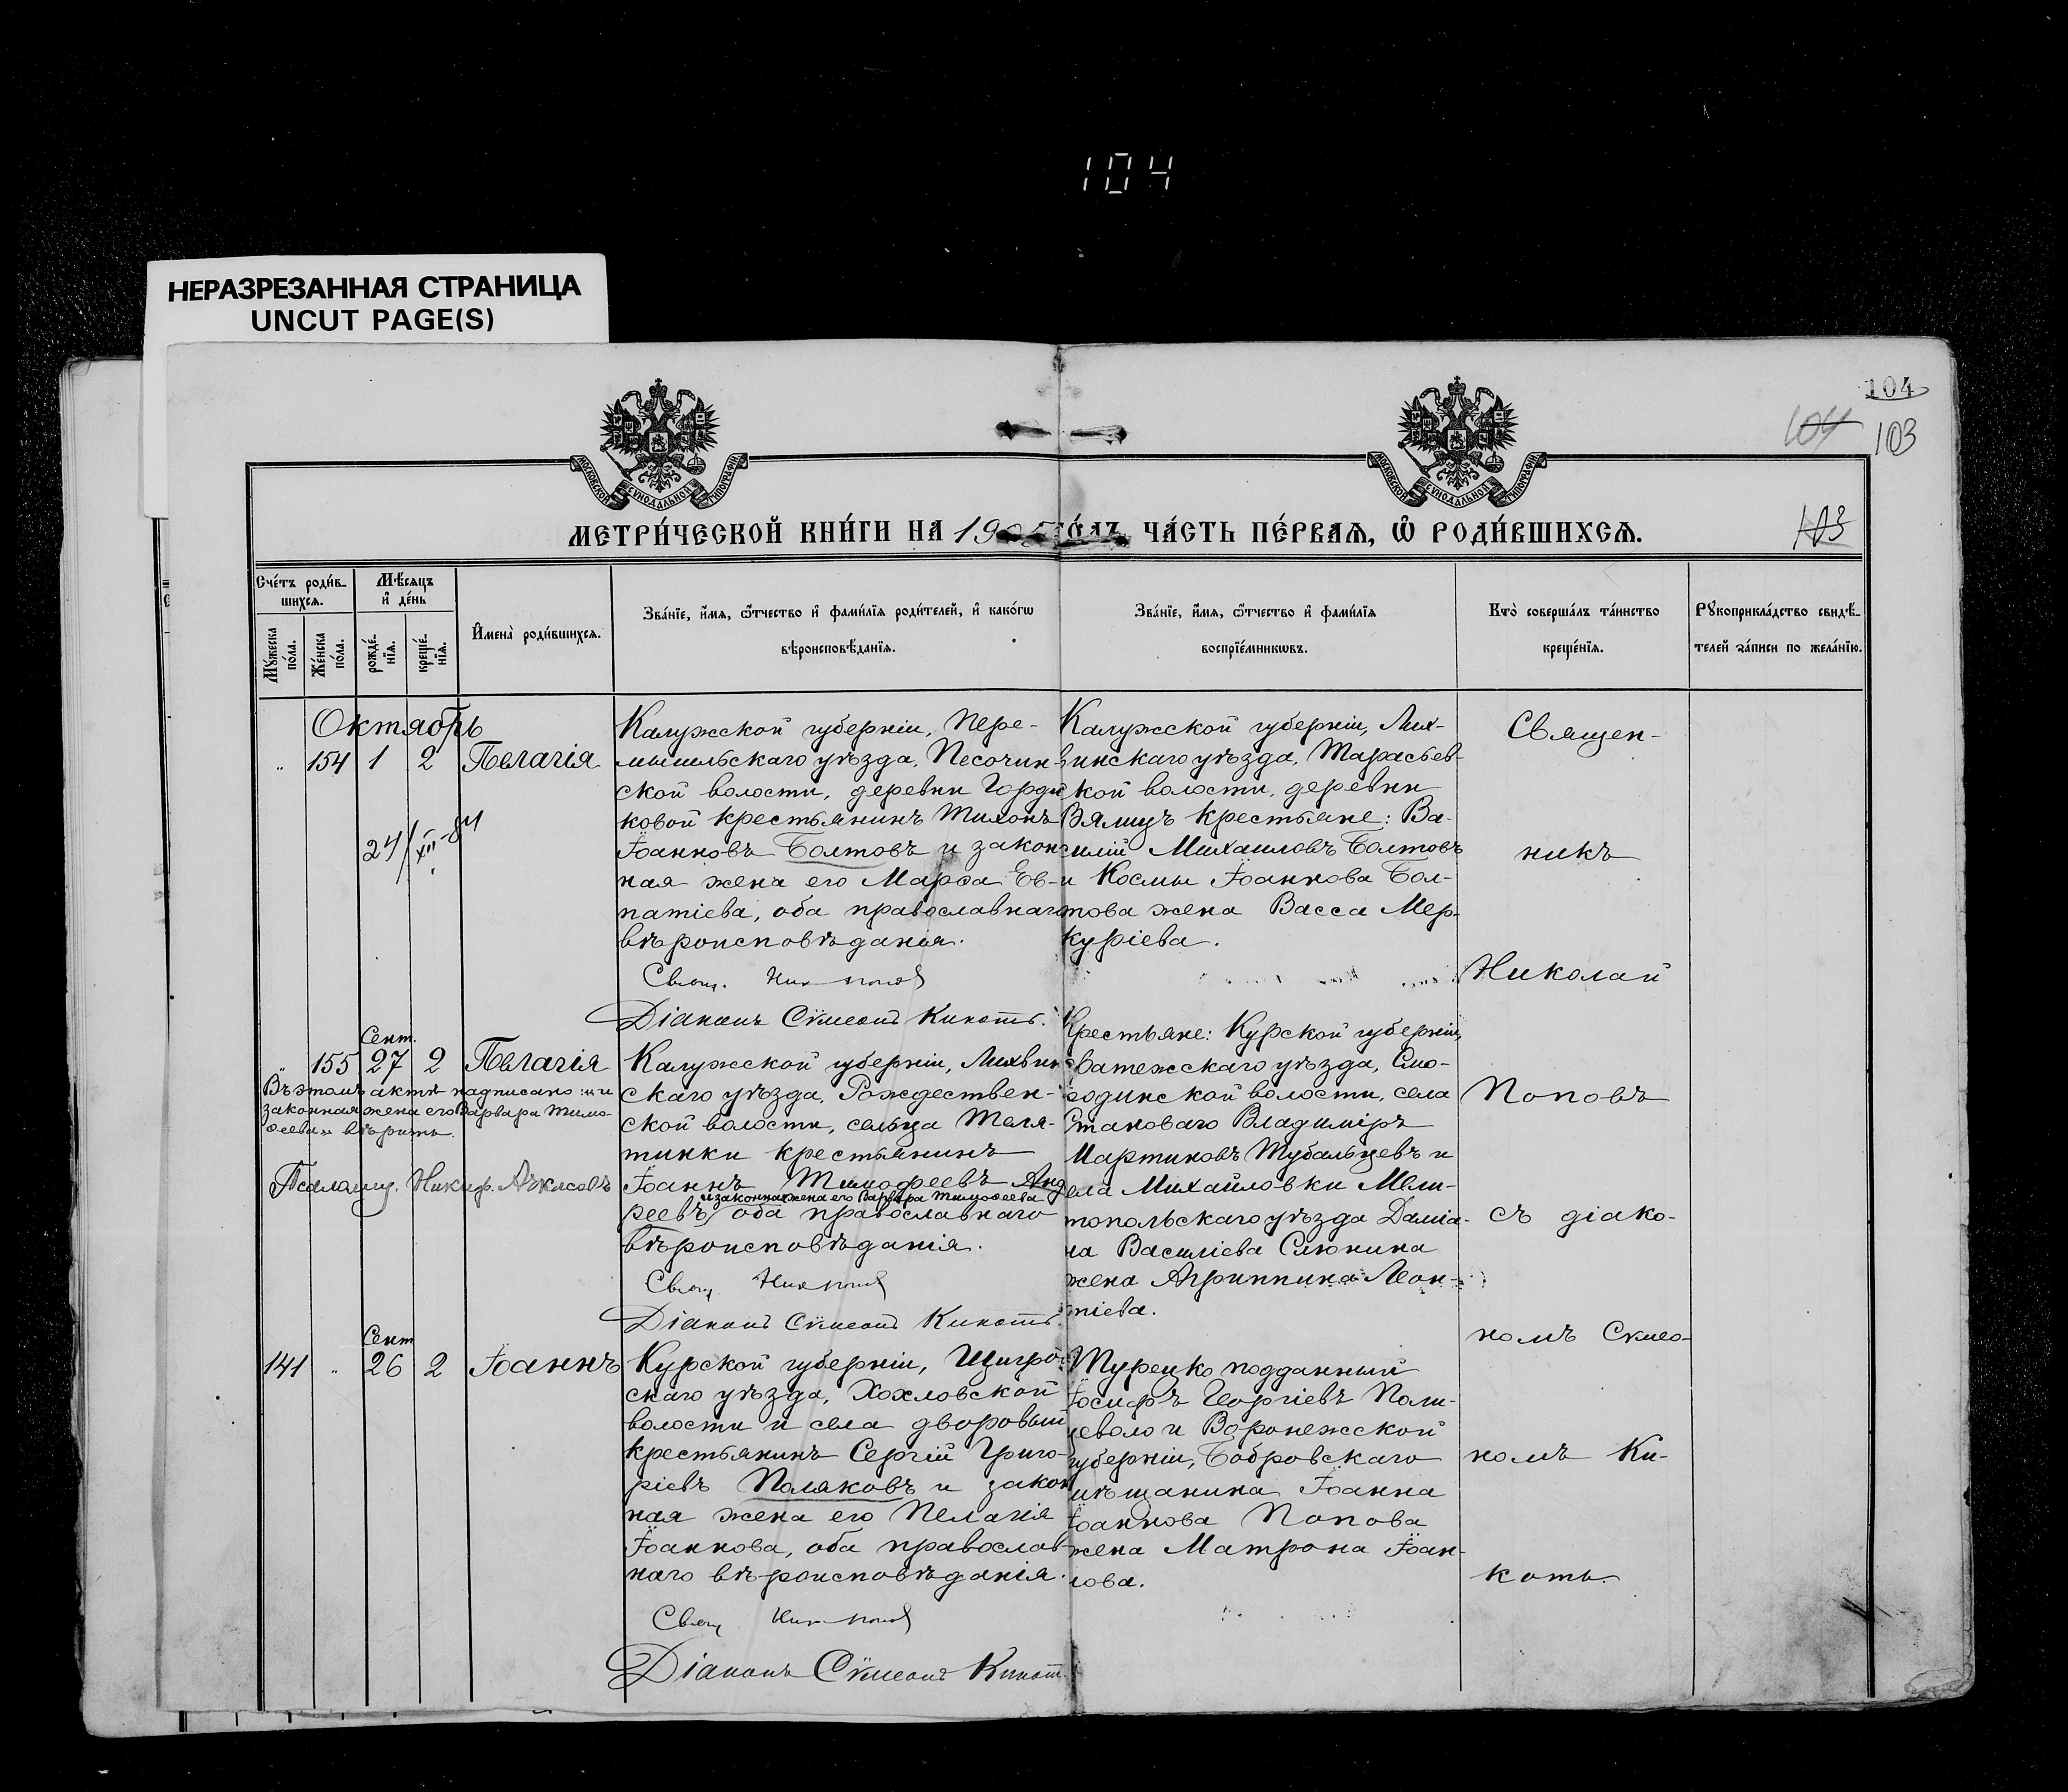 104
НЕРАЗРЕЗАННАЯ СТРАНИЦА
UNCUT PAGE(S)
104
104
103
МОСКОВСКОЙ СУНОДАЛЬНОЙ ТИПОГРАФІИ
МОСКОВСКОЙ СУНОДАЛЬНОЙ ТИПОГРАФІИ
МЕТРИ́ЧЕСКОЙ КНИ́ГИ НА 1905 ГО́ДЪ, ЧА́СТЬ ПЕ́РВАѦ, Ѽ РОДИ́ВШИХСѦ.
103
Сче́тъ роди́в-
шихсѧ.
Мꙋ́жеска по́ла.
Же́нска по́ла.
Мѣ́сѧцъ
и҆ де́нь
рожде́-
нїѧ.
креще́-
нїѧ.
И҆мена̀ роди́вшихсѧ.
Зва́нїе, и҆́мѧ, ѻ҆́тчество и҆ фами́лїѧ роди́телей, и҆ како́гѡ
вѣроисповѣ́данїѧ.
Зва́нїе, и҆́мѧ, ѻ҆́тчество и҆ фами́лїѧ
воспрїе́мникѡвъ.
Кто̀ соверша́лъ та́инство
креще́нїѧ.
Рꙋкоприкла́дство свидѣ́-
телей за́писи по жела́нїю.
Октябрь
„ 154 1 2 Пелагія
24/XII-84
Калужской губерніи, Пере-
мышльскаго уѣзда, Песочин-
ской волости, деревни Горди
ковой крестьянинъ Тихонъ
Іоанновъ Болтовъ и закон
ная жена его Марѳа Ев-
патіева, оба православнаго
вѣроисповѣданія.
Свящ. Ник Попов
Діаконъ Сѵмеонъ Кикоть.
Калужской губерніи, Лих-
винскаго уѣзда, Тарасьев-
кой волости, деревни
Вялицъ крестьяне: Ва-
силій Михаиловъ Болтовъ
и Космы Іоаннова Бол-
това жена Васса Мер-
куріева.
Священ-
никъ
Николай
Поповъ
съ діако-
номъ Сѵмео-
номъ Ки-
коть.
Сент.
„ 155 27 2 Пелагія
Въ этомъ актѣ надписано: „и
законная жена его Варвара Тимо-
ѳеева“ вѣрить.
Псаломщ. Никиф.
Калужской губерніи, Лихвин
скаго уѣзда, Рождествен-
ской волости, сельца Теля-
тинки крестьянинъ
Іоаннъ Тимоѳеевъ Анд
и законная жена его Варвара Тимоѳеева
реевъ, оба православнаго
вѣроисповѣданія.
Свящ Ник Попов
Діаконъ Сѵмеонъ Кикоть.
Крестьяне: Курской губерніи,
Фатежскаго уѣзда, Смо-
родинской волости, села
Становаго Владиміръ
Мартиновъ Тубальцевъ и
села Михайловки Мели-
топольскаго уѣзда Даміа-
на Василіева Слюнина
жена Агриппина Леон-
тіева.
Сент
141 „ 26 2 Іоаннъ
Курской губерніи, Щигров
скаго уѣзда, Хохловской
волости и села дворовый
крестьянинъ Сергій Григо-
ріевъ Поляковъ и закон
ная жена его Пелагія
Іоаннова, оба православ-
наго вѣроисповѣданія.
Свящ Ник Попов
Діаконъ Сѵмеонъ Кикоть
Турецко подданный
Іосифъ Георгіевъ Поли-
цеволо и Воронежской
губерніи, Бобровскаго
мѣщанина Іоанна
Іоаннова Попова
жена Матрона Іоан-
нова.